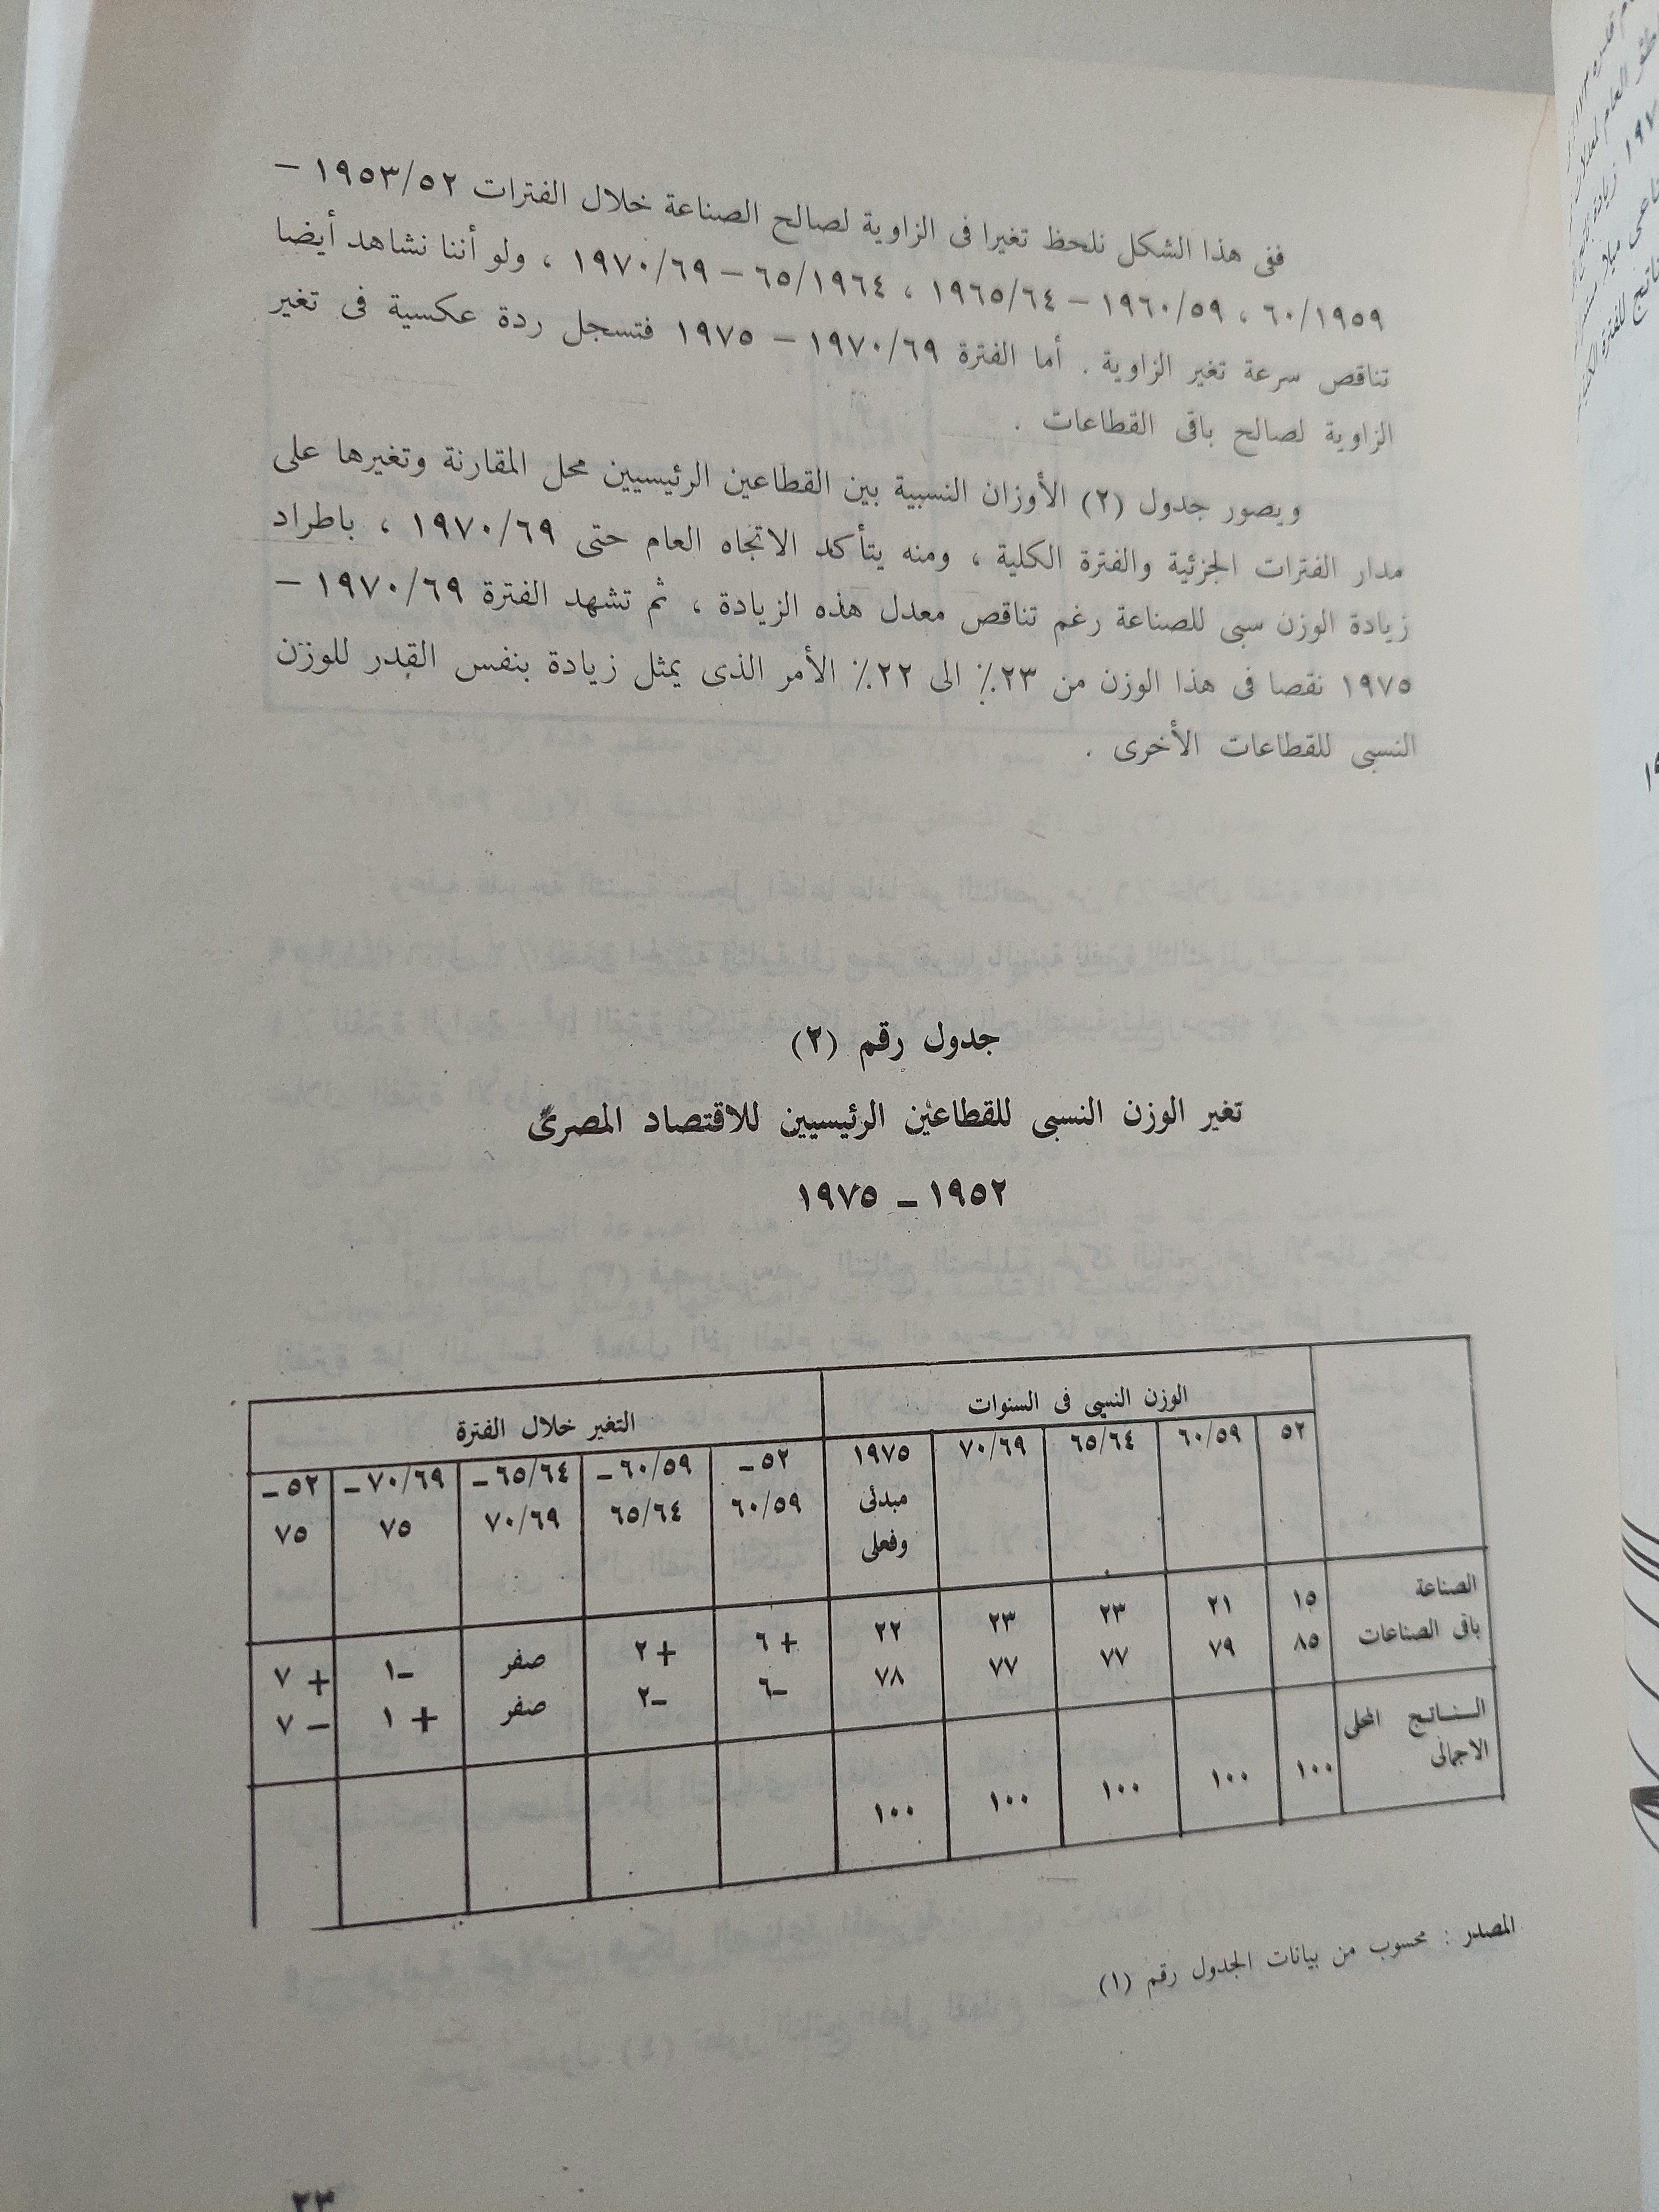 ففى هذا الشكل نلحظ تغيرا فى الزاوية لصالح الصناعة خلال الفترات ١٩٥٣/٥٢ –
٦٠/١٩٥٩ ، ١٩٦٠/٥٩ – ١٩٦٥/٦٤ ، ٦٥/١٩٦٤ – ١٩٧٠/٦٩ ، ولو أننا نشاهد أيضا
تناقص سرعة تغير الزاوية . أما الفترة ١٩٧٠/٦٩ – ١٩٧٥ فتسجل ردة عكسية فى تغير
الزاوية لصالح باقى القطاعات .
ويصور جدول (٢) الأوزان النسبية بين القطاعين الرئيسيين محل المقارنة وتغيرها على
مدار الفترات الجزئية والفترة الكلية ، ومنه يتأكد الاتجاه العام حتى ١٩٧٠/٦٩ ، باطراد
زيادة الوزن سبى للصناعة رغم تناقص معدل هذه الزيادة ، ثم تشهد الفترة ١٩٧٠/٦٩ –
١٩٧٥ نقصا فى هذا الوزن من ٢٣٪ الى ٢٢٪ الأمر الذى يمثل زيادة بنفس القدر للوزن
النسبى للقطاعات الأخرى .
جدول رقم (٢)
تغير الوزن النسبى للقطاعين الرئيسيين للاقتصاد المصرى
١٩٥٢ – ١٩٧٥
الوزن النسبى فى السنوات التغير خلال الفترة
٥٢ ٦٠/٥٩ ٦٥/٦٤ ٧٠/٦٩ ١٩٧٥ ٥٢ – ٦٠/٥٩ – ٦٥/٦٤ – ٧٠/٦٩ – ٥٢ –
مبدئى ٦٠/٥٩ ٦٥/٦٤ ٧٠/٦٩ ٧٥ ٧٥
وفعلى
الصناعة ١٥ ٢١ ٢٣ ٢٣ ٢٢ + ٦ + ٢ صفر –١ + ٧
باقى الصناعات ٨٥ ٧٩ ٧٧ ٧٧ ٧٨ –٦ –٢ صفر + ١ – ٧
النـاتـج المحلى
الاجمالى ١٠٠ ١٠٠ ١٠٠ ١٠٠ ١٠٠
المصدر : محسوب من بيانات الجدول رقم (١)
٢٣